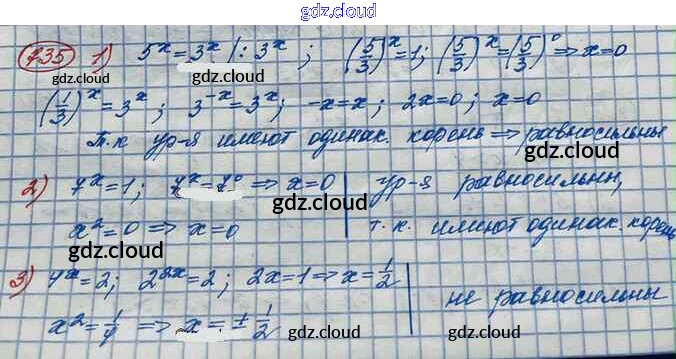 gdz.cloud
gdz.cloud
735 1) 5^x = 3^x |: 3^x ; (5/3)^x = 1; (5/3)^x = (5/3)^0 ⇒ x = 0
gdz.cloud gdz.cloud
(1/3)^x = 3^x ; 3^-x = 3^x; -x = x; 2x = 0; x = 0
gdz.cloud gdz.cloud
Т.к ур-я имеют одинак. корень ⇒ равносильны
gdz.cloud
2) 7^x = 1; 7^x = 7^0 ⇒ x = 0 | ур-я равносильны,
gdz.cloud gdz.cloud
x² = 0 ⇒ x = 0 | т.к. имеют одинак. корень
gdz.cloud
3) 4^x = 2; 2^2x = 2; 2x = 1 ⇒ x = 1/2 | не равносильны
gdz.cloud
x² = 1/4 ⇒ x = ± 1/2
gdz.cloud gdz.cloud